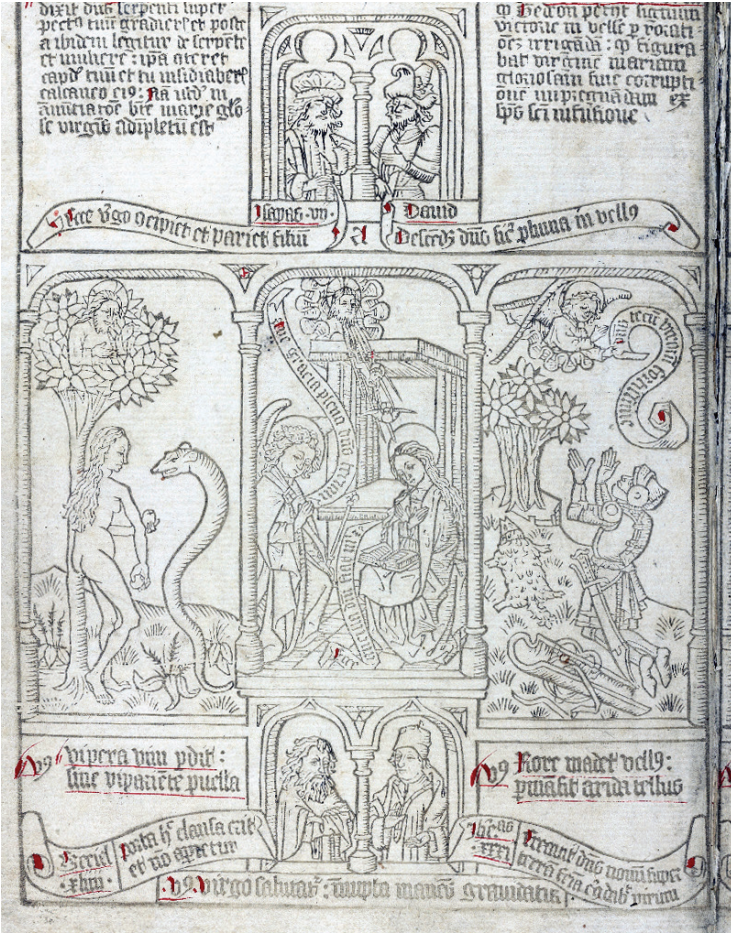 dixit dn̄s serpenti super
pectꝰ tuū gradierꝭ et poste
a ibidem legitur de serpēte
et muliere : ip̄a ꝯteret
capd̄ tuū et tu insidiaberꝭ
calcaneo eiꝰ : Nā ad in
anūtiacōe btē marie glo
se virgīs adipletū est
ꝙ Gedeon petiit signum
victorie in velle ꝑ rorati
oēꝫ irrigādā : ꝙ figura
bat virginē mariam
gloriosam sine corrupti
one impregnādam ex
spūs scī infusione
Ysayas · vii ·
David
Ecce v̄go ꝯcipiet et pariet filiū
a
Descedꝫ dn̄s sic̄ pluuia in vellꝰ
Aue gracia plena dn̄s tecum
Ecce
ancilla dn̄i fiat michi
dn̄s tecū virorū fortissime
vꝰ vipera vim ꝑdit :
sine vi pariēte puella
vꝰ Rore madet vellꝰ :
ꝑmāsit arida tellus
Ezeciel
· xliiii ·
porta hec clausa erit
et nō aperietur
Iheᵃˢ
xxxi
Creauit dn̄s nouū super
terrā femīa circūdabit virum
vꝰ Virgo salutatꝛ : inupta manēs grauidatꝛ